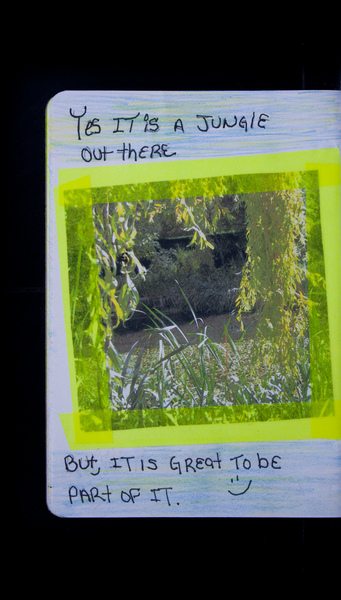 Yes IT is A JUNGLE
out there
But, IT IS GREat To be
PARt OF IT.